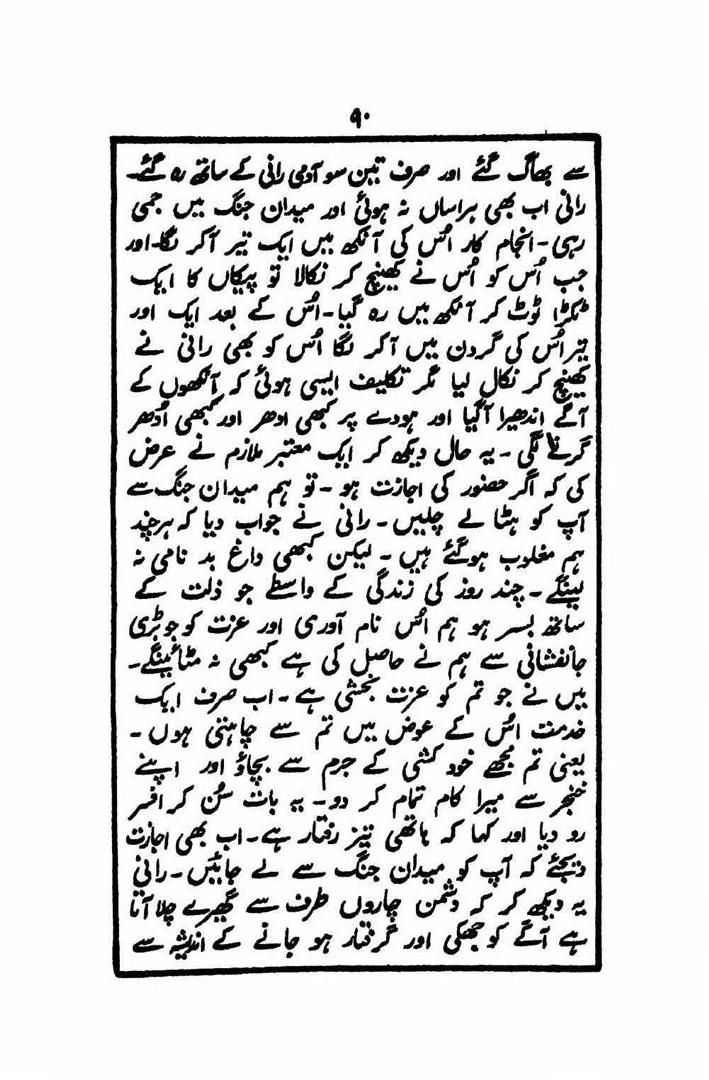 ۹۰
سے بھاگ گئے اور صرف تین سو آدمی رانی کے ساتھ رہ گئے۔
رانی اب بھی ہراساں نہ ہوئی اور میدان جنگ میں جمی
رہی۔ انجام کار اُس کی آنکھ میں ایک تیر آکر لگا۔ اور
جب اُس کو اُس نے کھینچ کر نکالا تو پیکاں کا ایک
ٹکڑا ٹوٹ کر آنکھ میں رہ گیا۔ اُس کے بعد ایک اور
تیر اُس کی گردن میں آکر لگا اُس کو بھی رانی نے
کھینچ کر نکال لیا مگر تکلیف ایسی ہوئی کہ آنکھوں کے
آگے اندھیرا آگیا اور ہودے پر کبھی ادھر اور کبھی اُدھر
گرنے لگی ۔ یہ حال دیکھ کر ایک معتبر ملازم نے عرض
کی کہ اگر حضور کی اجازت ہو ۔ تو ہم میدان جنگ سے
آپ کو ہٹا لے چلیں ۔ رانی نے جواب دیا کہ ہرچند
ہم مغلوب ہوگئے ہیں ۔ لیکن کبھی داغ بد نامی نہ
لینگے ۔ چند روز کی زندگی کے واسطے جو ذلت کے
ساتھ بسر ہو ہم اُس نام آوری اور عزت کو جو بڑی
جانفشانی سے ہم نے حاصل کی ہے کبھی نہ مٹائینگے۔
میں نے جو تم کو عزت بخشی ہے ۔ اب صرف ایک
خدمت اُس کے عوض میں تم سے چاہتی ہوں ۔
یعنی تم مجھے خود کشی کے جرم سے بچاؤ اور اپنے
خنجر سے میرا کام تمام کر دو ۔ یہ بات سُن کر افسر
رو دیا اور کہا کہ ہاتھی تیز رفتار ہے ۔ اب بھی اجازت
دیجئے کہ آپ کو میدان جنگ سے لے جائیں ۔ رانی
یہ دیکھ کر کہ دشمن چاروں طرف سے گھیرے چلا آتا
ہے آگے کو جھکی اور گرفتار ہو جانے کے اندیشہ سے